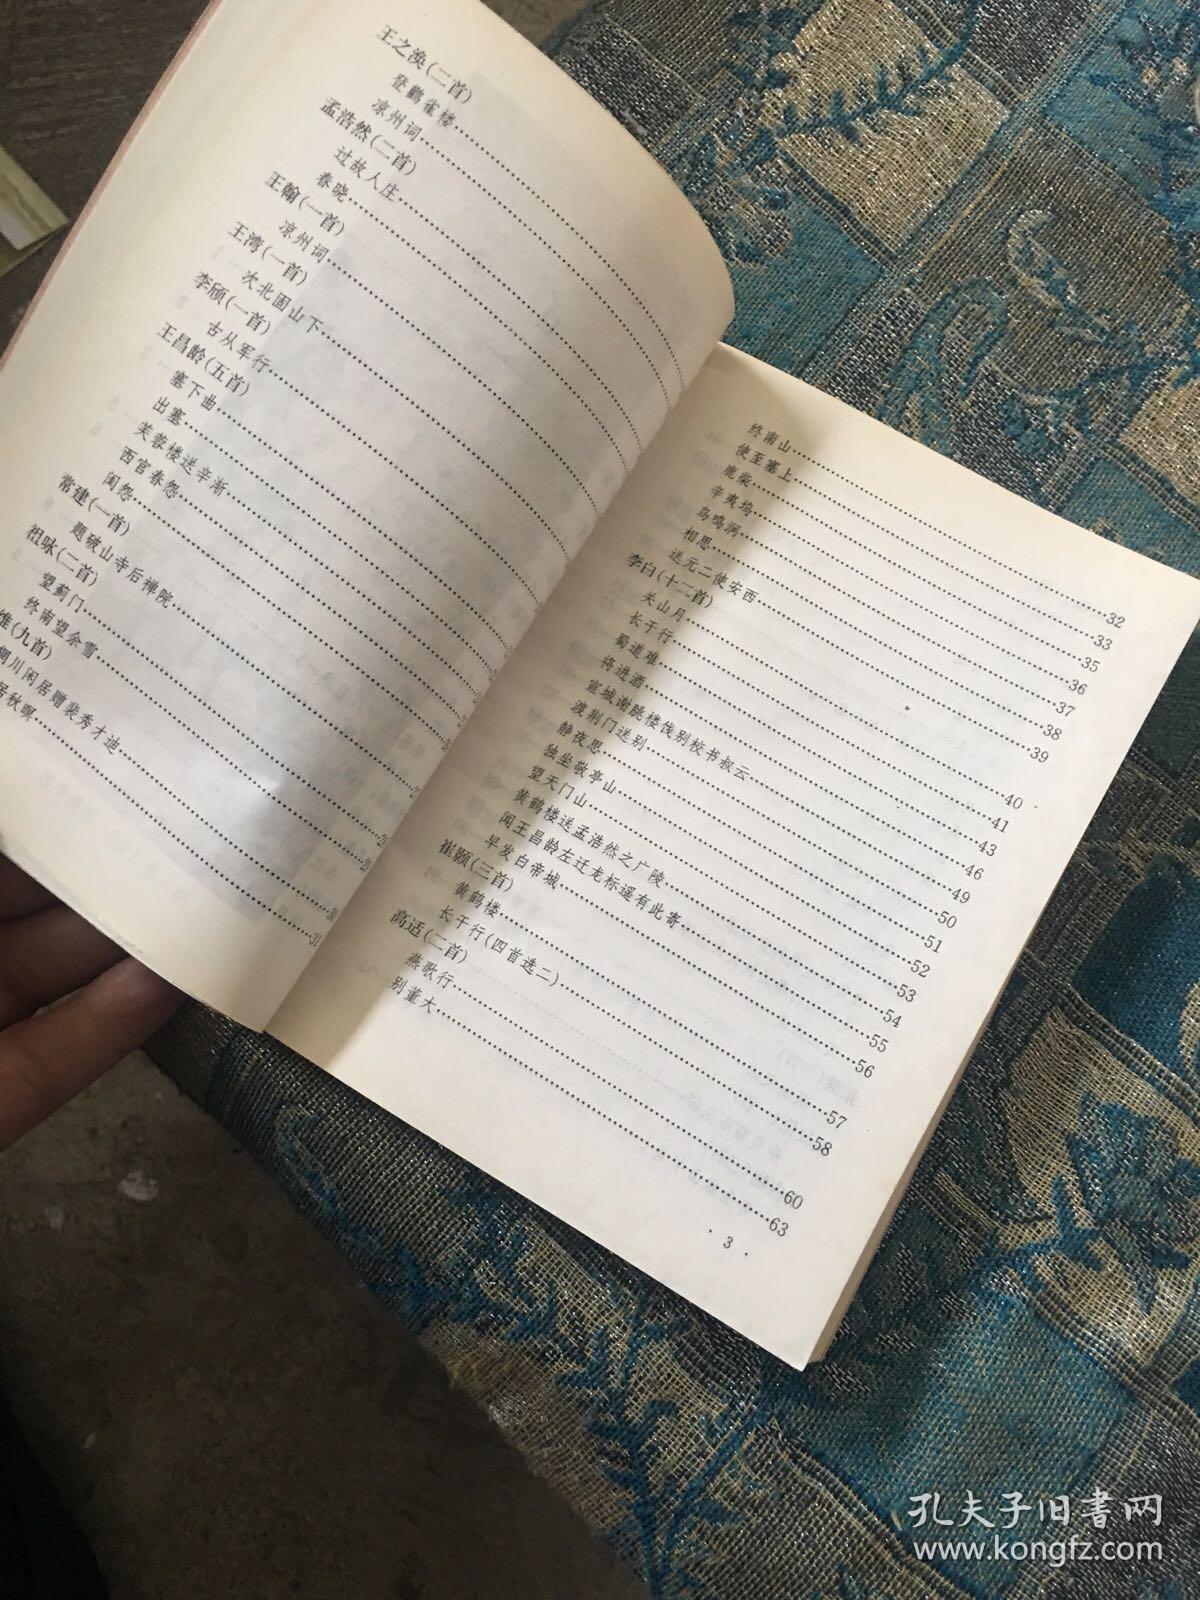 王之涣(二首)
登鹳雀楼
凉州词
孟浩然(二首)
过故人庄
春晓
王翰(一首)
凉州词
王湾(一首)
次北固山下
李颀(一首)
古从军行
王昌龄(五首)
塞下曲
出塞
芙蓉楼送辛渐
西宫春怨
闺怨
常建(一首)
题破山寺后禅院
祖咏(二首)
望蓟门
终南望余雪
维(九首)
川闲居赠裴秀才迪……30
居秋暝……31
终南山……32
使至塞上……33
鹿柴……35
辛夷坞……36
鸟鸣涧……37
相思……38
送元二使安西……39
李白(十二首)
关山月……40
长干行……41
蜀道难……43
将进酒……46
宣城谢朓楼饯别校书叔云……49
渡荆门送别……50
静夜思……51
独坐敬亭山……52
望天门山……53
黄鹤楼送孟浩然之广陵……54
闻王昌龄左迁龙标遥有此寄……55
早发白帝城……56
崔颢(三首)
黄鹤楼……57
长干行(四首选二)……58
高适(二首)
燕歌行……60
别董大……63
· 3 ·
孔夫子旧書网
www.kongfz.com